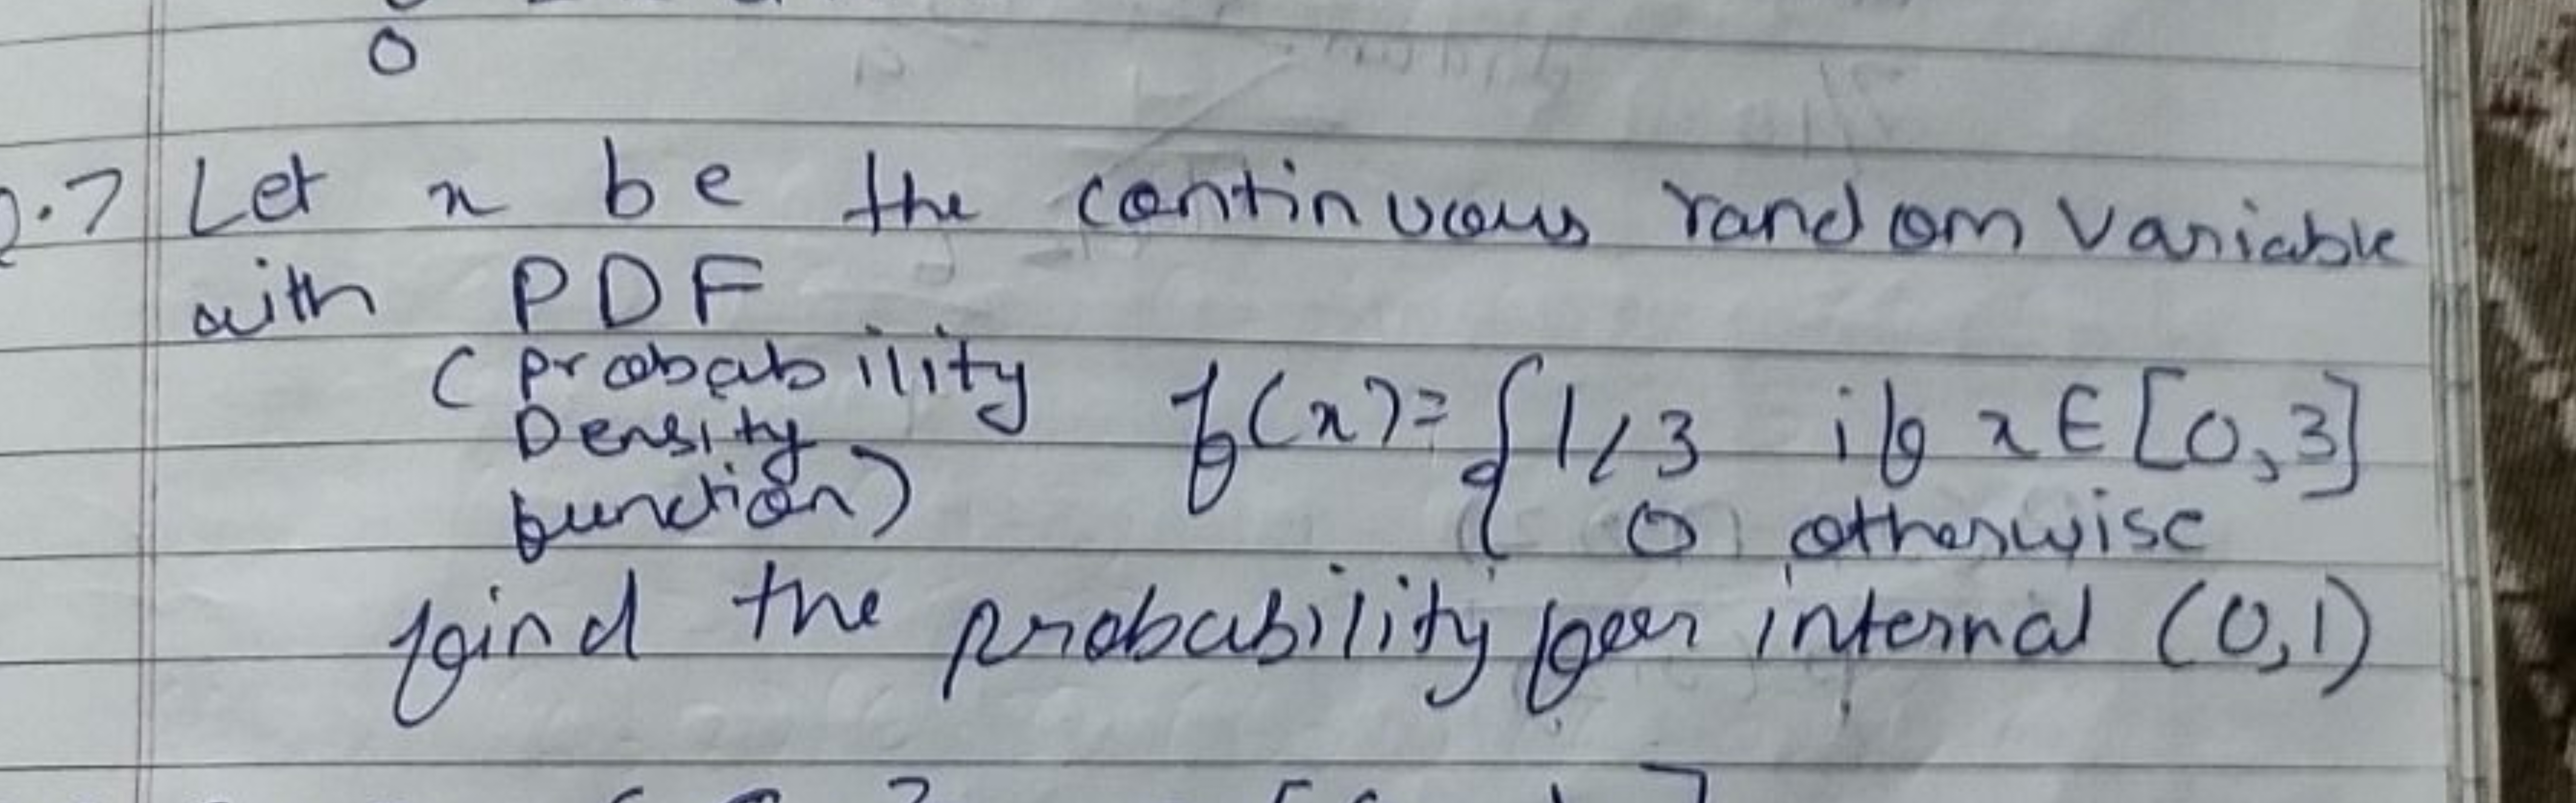 0
Q.7 Let x be the continuous random variable
with PDF
(probability
Density
function)
f(x)= { 1/3 if x ∈ [0,3]
0 otherwise
find the probability for internal (0,1)